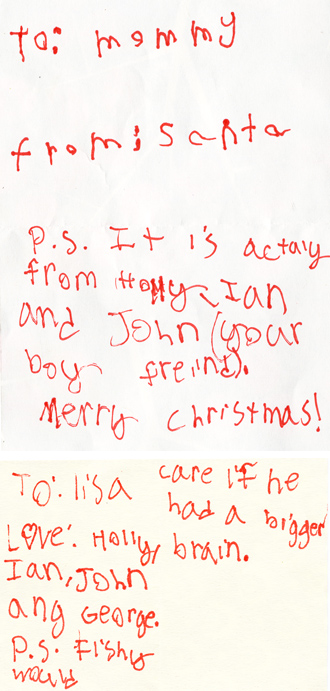 To: mommy
from: santa
P.S. It is actaly
from Holly, Ian
and John (your
boy freind).
Merry christmas!
To: lisa
Love: Holly,
Ian, John
ang George.
P.S. Fishy
would
care if he
had a bigger
brain.